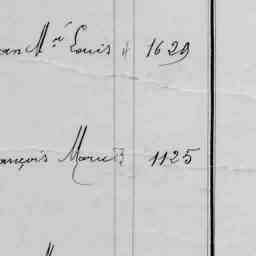 an Mie Louis " 1629
ançois Marie 1125